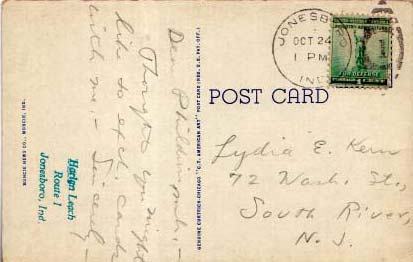 Dear Philswimmer, -
Thought you might
like to exch. cards
with me. - Sincerely -
Harlyn Leach
Route 1
Jonesboro, Ind.
MUNCIE NEWS CO., MUNCIE, IND.
GENUINE CURTEICH-CHICAGO "C.T. AMERICAN ART" POST CARD (REG. U.S. PAT. OFF.)
JONESBORO
OCT 24
1 PM
IND.
FOR DEFENSE
POST CARD
Lydia E. Kern
72 Wash. St.,
South River,
N. J.